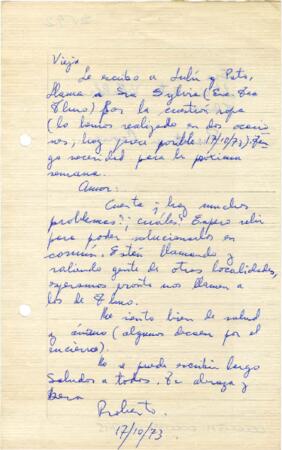 Vieja
Le escribo a Lulú y Pato,
llama a Sra Sylvia (Sra Tea
Thno) por la cuestión ropa
(lo hemos realizado en dos ocacio
nes, hoy posible 17/10/73). Ten
go necesidad para la próxima
semana.
Amor:
Cuenta ¿hay muchos
problemas?; ¿cuáles? Espero salir
para poder solucionarlos en
común. Están llamando y
saliendo gente de otras localidades,
esperamos pronto nos llamen a
los de Thno.
Me siento bien de salud
y ánimo (algunos decaen por el
encierro).
No se puede escribir largo
Saludos a todos. Te abraza y
besa
Roberto.
17/10/73